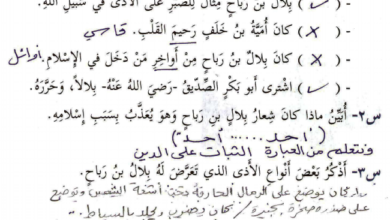 - (✓) بِلَالُ بْنُ رَبَاحٍ مِثَالٌ لِلصَّبْرِ عَلَى الْأَذَى فِي سَبِيلِ اللَّهِ.
- (X) كَانَ أُمَيَّةُ بْنُ خَلَفٍ رَحِيمَ الْقَلْبِ. قاسي
- (X) كَانَ بِلَالُ بْنُ رَبَاحٍ مِنْ أَوَاخِرِ مَنْ دَخَلَ فِي الْإِسْلَامِ. أوائل
- (✓) اشْتَرَى أَبُو بَكْرٍ الصِّدِّيقُ -رَضِيَ اللَّهُ عَنْهُ- بِلَالاً، وَحَرَّرَهُ.
س٢- أُبَيِّنُ مَاذَا كَانَ شِعَارُ بِلَالِ بْنِ رَبَاحٍ وَهُوَ يُعَذَّبُ بِسَبَبِ إِسْلَامِهِ.
(أحد ..... أحد)
ونتعلم من العبارة الثبات على الدين
س٣- أَذْكُرُ بَعْضَ أَنْوَاعِ الْأَذَى الَّذِي تَعَرَّضَ لَهُ بِلَالُ بْنُ رَبَاحٍ.
كان يوضع على الرمال الحارقة وتحت أشعة الشمس وتوضع
على صدره صخرة كبيرة / كان يضرب ويجلد بالسياط.